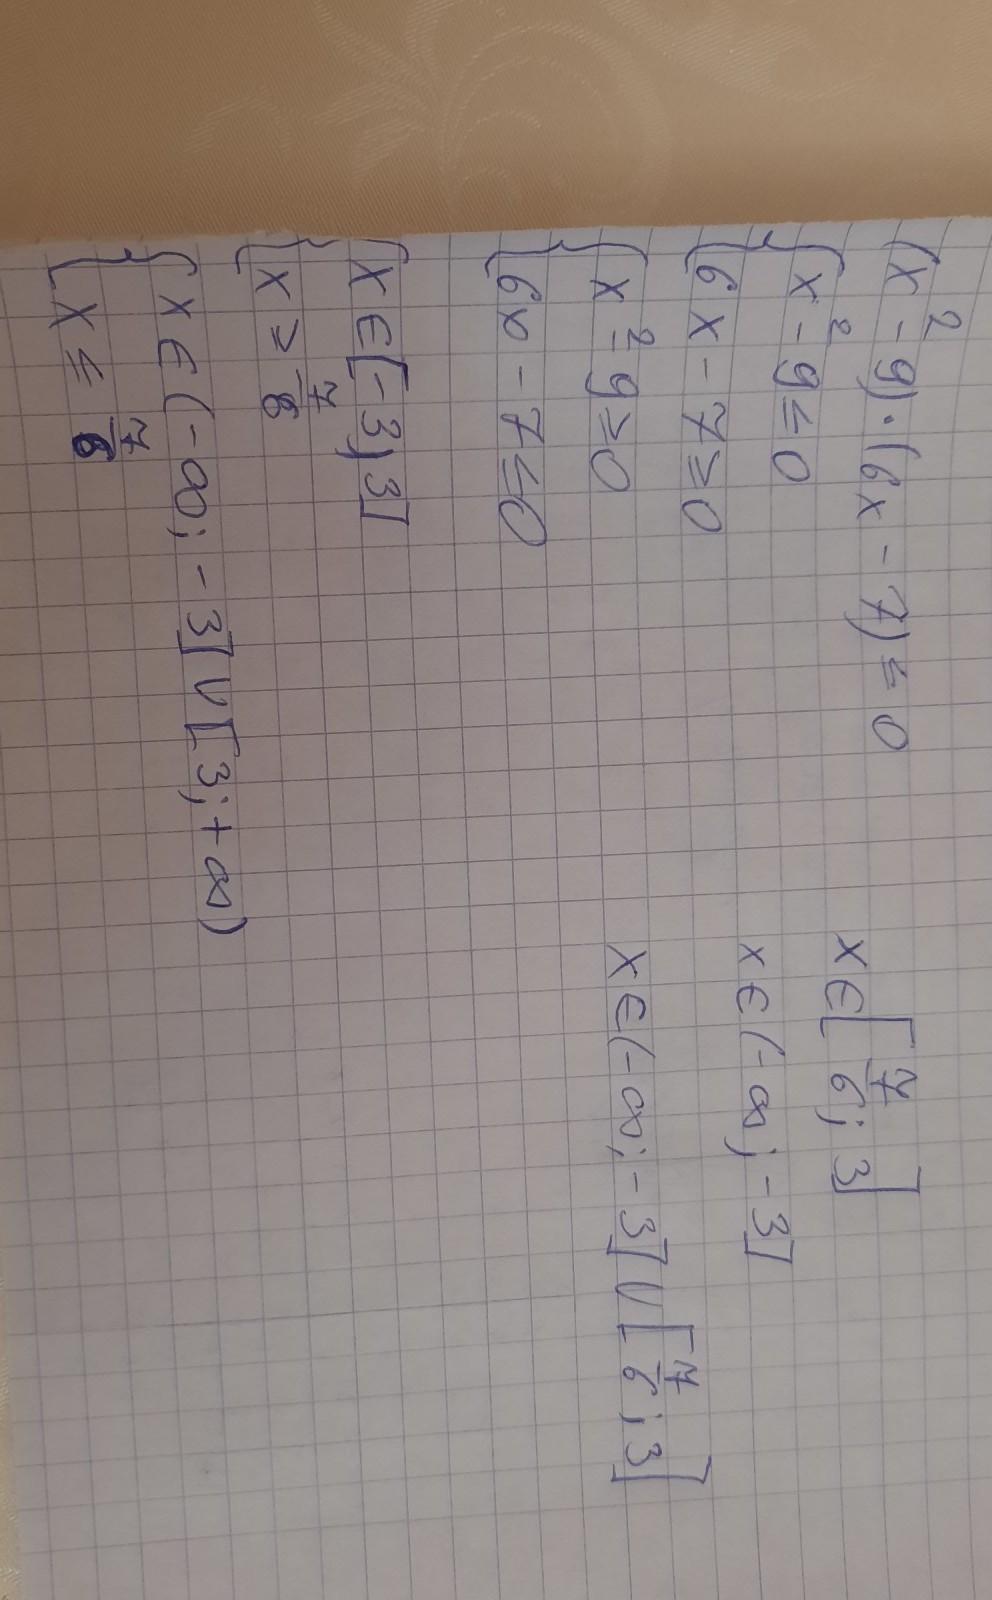 (x² - 9) · (6x - 7) ≤ 0
{ x² - 9 ≤ 0
{ 6x - 7 ≥ 0
{ x² - 9 ≥ 0
{ 6x - 7 ≤ 0
{ x ∈ [-3; 3]
{ x ≥ 7/6
{ x ∈ (-∞; -3] ∪ [3; +∞)
{ x ≤ 7/6
x ∈ [7/6; 3]
x ∈ (-∞; -3]
x ∈ (-∞; -3] ∪ [7/6; 3]